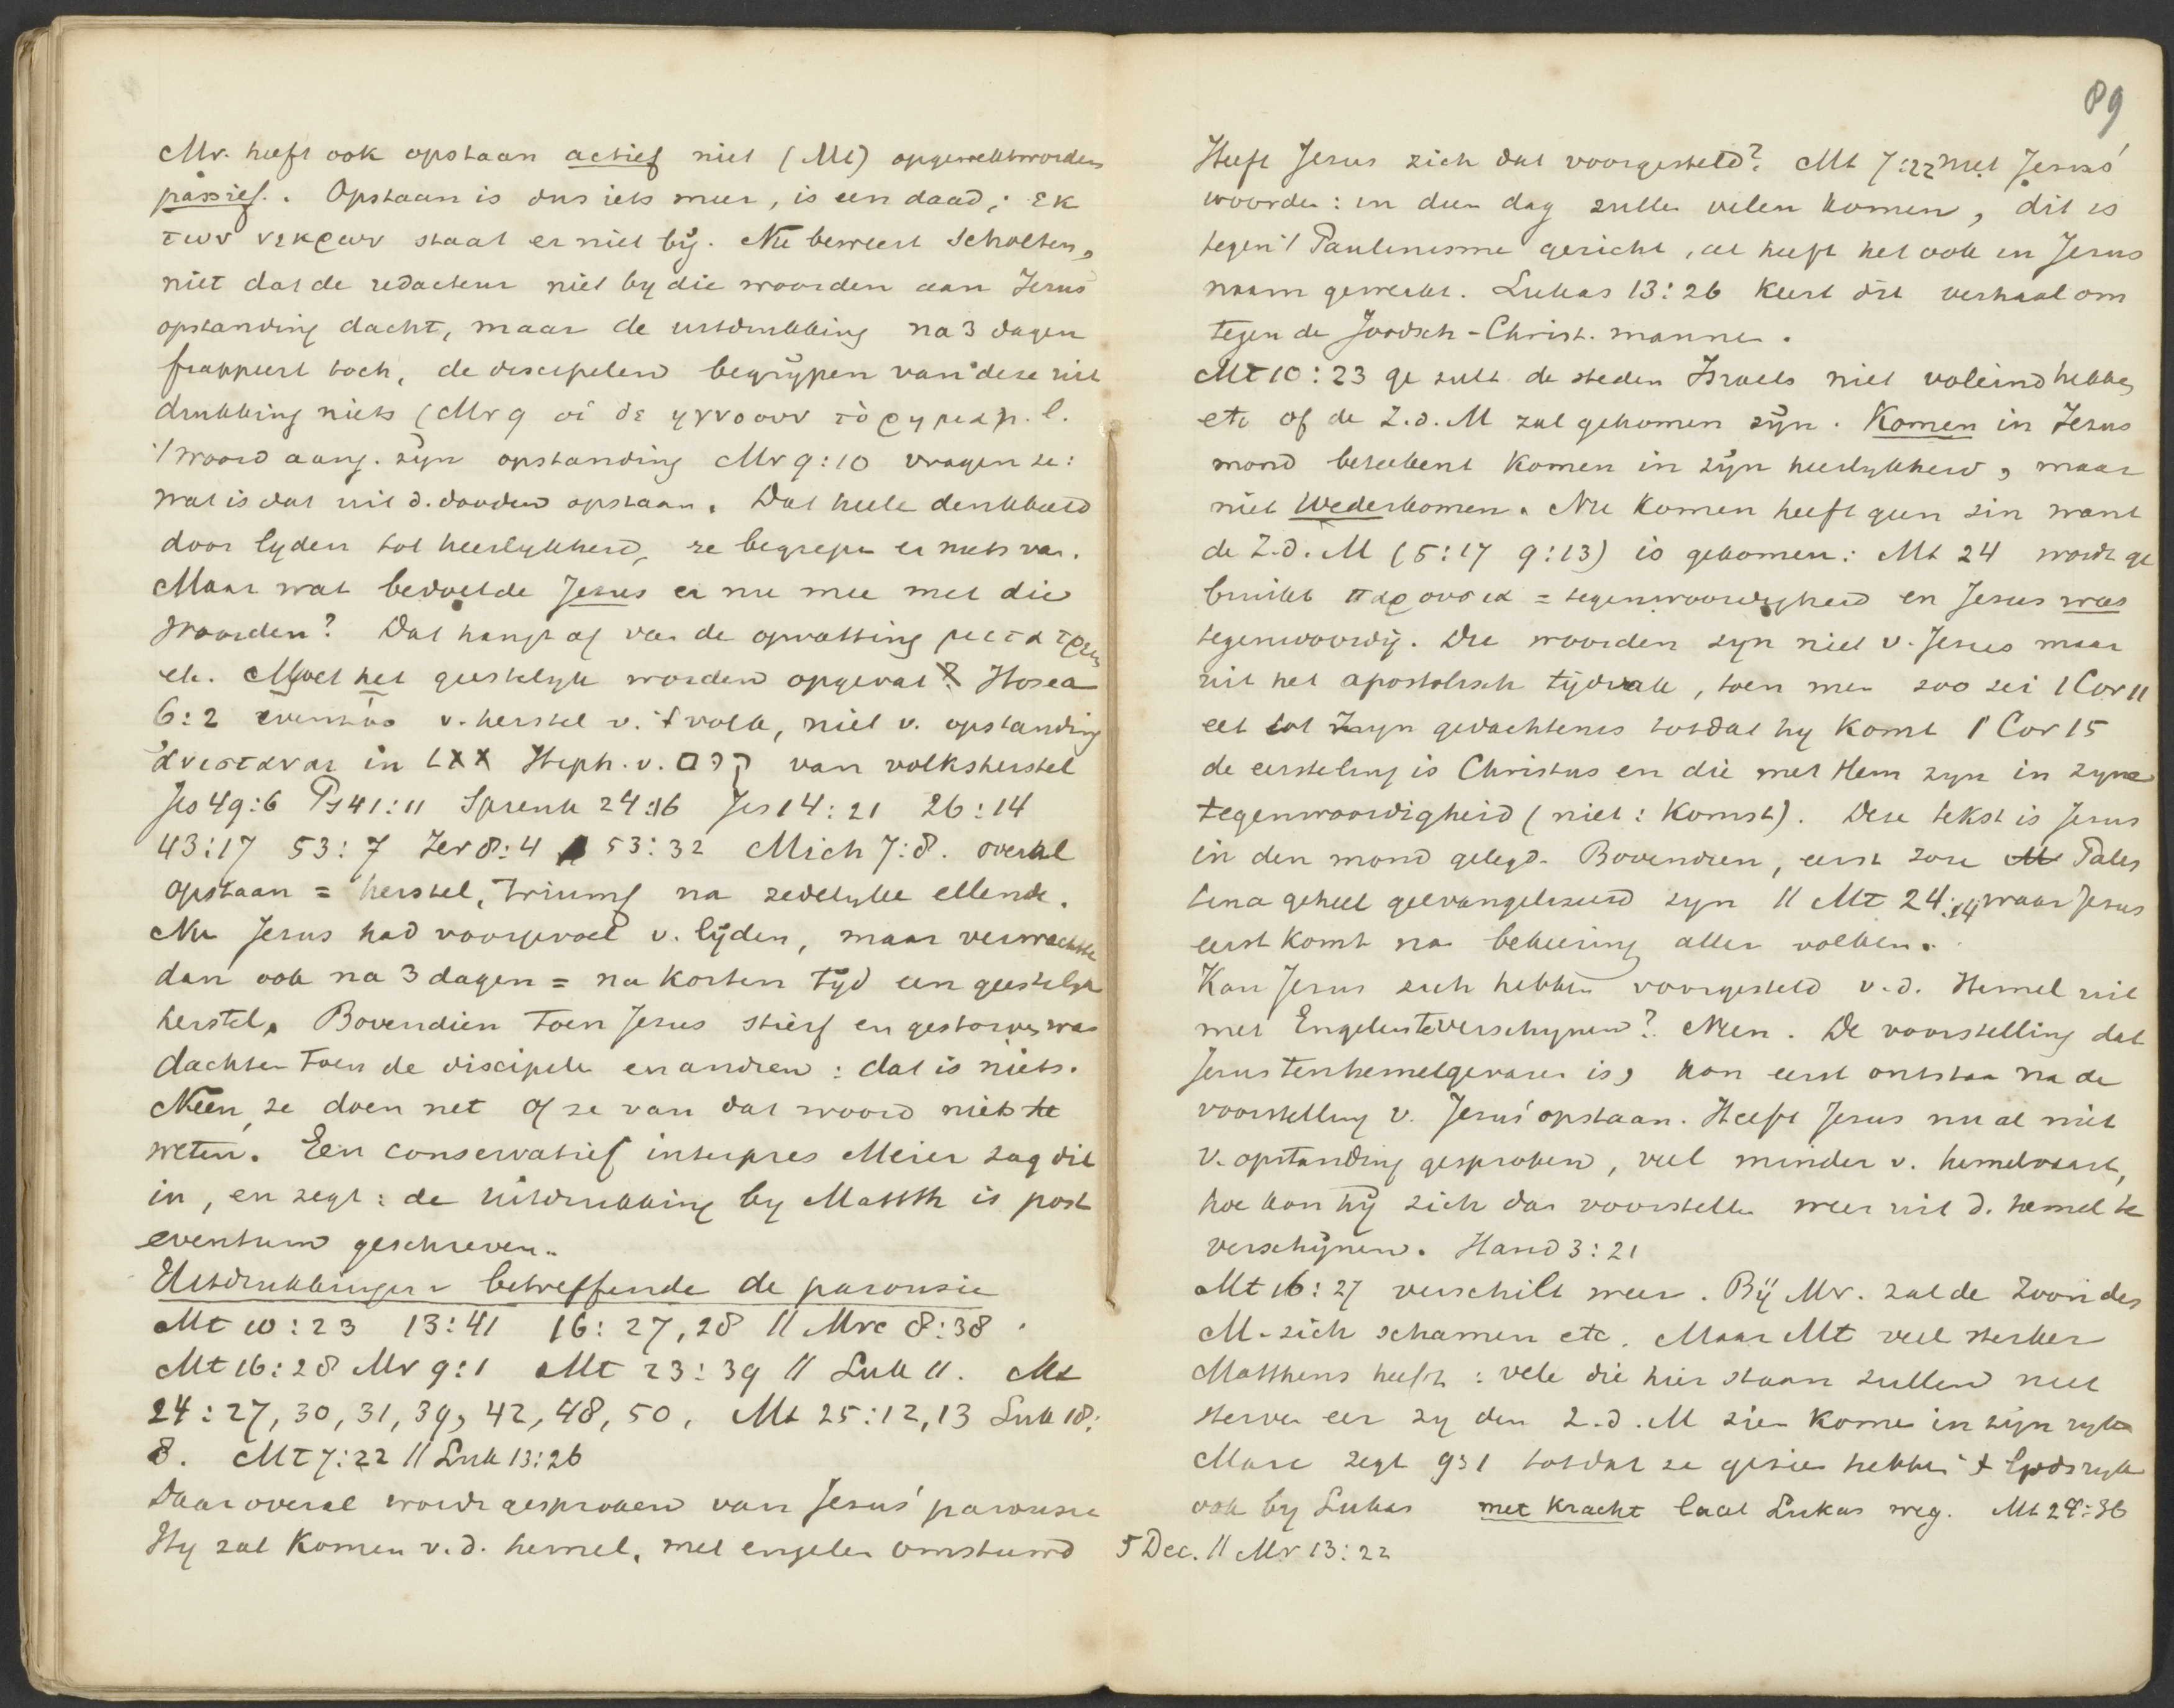 Mr. heeft ook opstaan actief niet (Mt) opgewektworden
passief. Opstaan is dus iets meer, is een daad; εκ
των νεκρων staat er niet bij. Nu beweert Scholten,
niet dat de redacteur niet by die woorden aan Jezus
opstanding dacht, maar de uitdrukking na 3 dagen
frappeert toch, de discipelen begrijpen van deze uit
drukking niets (Mr 9 οἱ δε ηγνοουν τὸ ρημα p. l.
't woord aang. zijn opstanding Mr 9:10 vragen ze:
wat is dat uit d. dooden opstaan. Dat heele denkbeeld
door lyden tot heerlykheid, ze begrepen er niets van.
Maar wat bedoelde Jezus er nu mee met die
woorden? Dat hangt af van de opvatting μετα τρεις
etc. Moet het geestelyk worden opgevat? Hosea
6:2 evenzoo v. herstel v. 't volk, niet v. opstanding
ἀνισταναι in LXX Hiph. v. קום van volksherstel
Jes 49:6 Ps 41:11 Spreuk 24:16 Jes 14:21 26:14
43:17 53:7 Jer 8:4 53:32 Mich 7:8. overal
opstaan = herstel, triumf na zedelyke ellende.
Nu Jezus had voorgevoel v. lijden, maar verwachtte
dan ook na 3 dagen = na korten tijd een geestelyk
herstel. Bovendien toen Jezus stierf en gestorven was
dachten toen de discipelen en andren: dat is niets.
Neen, ze doen net of ze van dat woord niets te
weten. Een conservatief interpres Meier zag dit
in, en zegt: de uitdrukking by Matth is post
eventum geschreven.
Uitdrukkingen betreffende de parousie
Mt 10:23 13:41 16:27,28 // Mrc 8:38.
Mt 16:28 Mr 9:1 Mt 23:39 // Luk 11. Mt
24:27, 30, 31, 39, 42, 48, 50, Mt 25:12,13 Luk 18:
8. Mt 7:22 // Luk 13:26
Daar overal wordt gesproken van Jezus' parousie
Hy zal komen v. d. hemel, met engelen omstuwd
89
Heeft Jezus zich dat voorgesteld? Mt 7:22 met Jezus'
woorden: in dien dag zullen velen komen, dit is
tegen 't Paulinisme gericht, al heeft het ook in Jezus
naam gewerkt. Lukas 13:26 keert dit verhaal om
tegen de Joodsch-Christ. mannen.
Mt 10:23 ge zult de steden Israels niet voleind hebben
etc of de Z.d.M zal gekomen zijn. Komen in Jezus
mond beteekent komen in zijn heerlykheid, maar
niet Wederkomen. Nu komen heeft geen zin want
de Z.d.M (5:17 9:13) is gekomen: Mt 24 wordt ge
bruikt παρουσια = tegenwoordigheid en Jezus was
tegenwoordig. Die woorden zyn niet v. Jezus maar
uit het apostolisch tijdvak, toen men zoo zei 1 Cor 11
eet tot Zyn gedachtenis totdat hy komt 1 Cor 15
de eersteling is Christus en die met Hem zyn in zyne
tegenwoordigheid (niet: komst). Deze tekst is Jezus
in den mond gelegd. Bovendien, eerst zou Pales
tina geheel geevangeliseerd zyn // Mt 24:14 waar Jezus
eerst komt na bekeering aller volken.
Kan Jezus zich hebben voorgesteld v. d. Hemel uit
met Engelen te verschynen? Neen. De voorstelling dat
Jezus ten hemel gevaren is, kon eerst ontstaan na de
voorstelling v. Jezus' opstaan. Heeft Jezus nu al niet
v. opstanding gesproken, veel minder v. hemelvaart,
hoe kon hij zich dan voorstellen weer uit d. hemel te
verschijnen. Hand 3:21
Mt 16:27 verschilt weer. Bij Mr. zal de Zoon des
M. zich schamen etc. Maar Mt veel sterker
Mattheus heeft: vele die hier staan zullen niet
sterven eer zy den Z.d.M zien komen in zijn ryk
Marc zegt 9:1 totdat ze gezien hebben 't Godsryk
ook by Lukas met kracht laat Lukas weg. Mt 24:36
5 Dec. // Mr 13:22